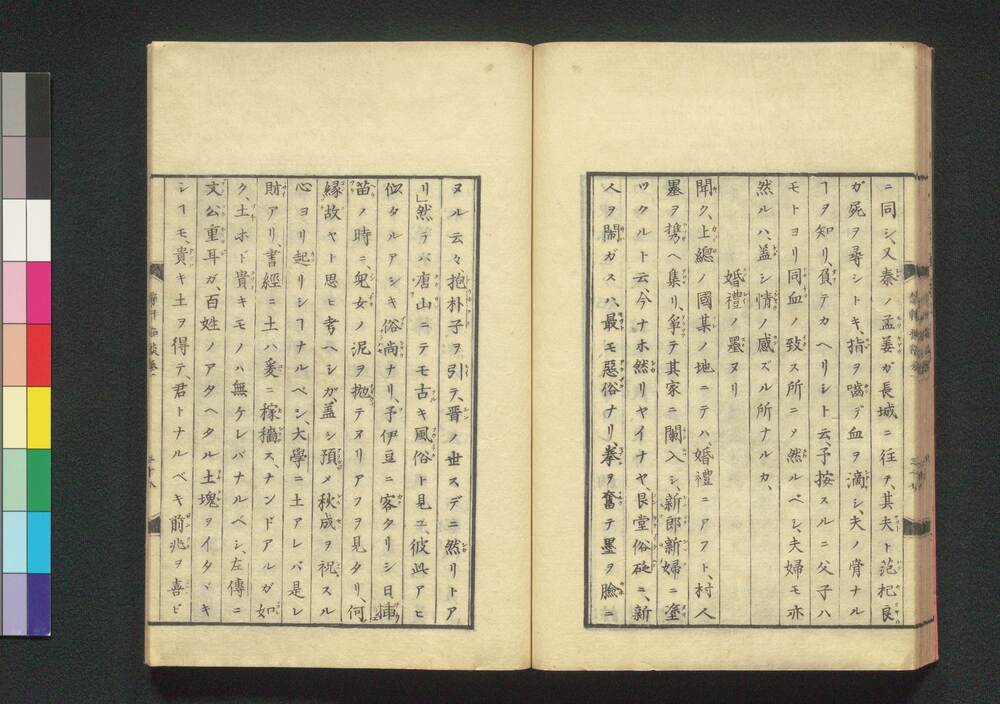 ニ同シ、又秦ノ孟姜ガ長城ニ往ヲ、其夫ト范杞良
ガ屍ヲ尋シトキ、指ヲ噛デ血ヲ滴シ、夫ノ骨ナル
ヿヲ知リ、負テカヘリシト云、予按スルニ父子ハ
モトヨリ同血ノ致ス所ニノ然ルベシ、夫婦モ亦
然ルハ、蓋シ情ノ感ズル所ナルカ、
婚禮ノ墨ヌリ
聞ク、上總ノ國某ノ地ニテハ、婚禮ニアフト、村人
墨ヲ携ヘ集リ、爭テ其家ニ闌入シ、新郎新婦ニ塗
ツクルト云、今ナホ然リヤイナヤ、艮堂俗砭ニ、新
人ヲ閙ガスハ、最モ惡俗ナリ、拳ヲ奮テ墨ヲ臉ニ
ヌル云々、抱朴子ヲ引テ、晋ノ世スデニ然リトア
リ」然ラバ唐山ニテモ古キ風俗ト見ユ、彼此アヒ
似タルアシキ俗尚ナリ、予伊豆ニ客タリシ日、挿
苗ノ時ニ、兒女ノ泥ヲ抛テヌリアフヲ見タリ、何
縁故ヤト思ヒ考ヘシガ、蓋シ預メ秋成ヲ祝スル
心ヨリ起リシヿナルベシ、大學ニ土アレバ是レ
財アリ、書經ニ土ハ爰ニ稼穡ス、ナンドアルガ如
ク、土ホド貴キモノハ無ケレバナルベシ、左傳ニ
文公重耳ガ、百姓ノアタヘタル土塊ヲイタヾキ
シヿモ、貴キ土ヲ得テ、君トナルベキ前兆ヲ喜ビ